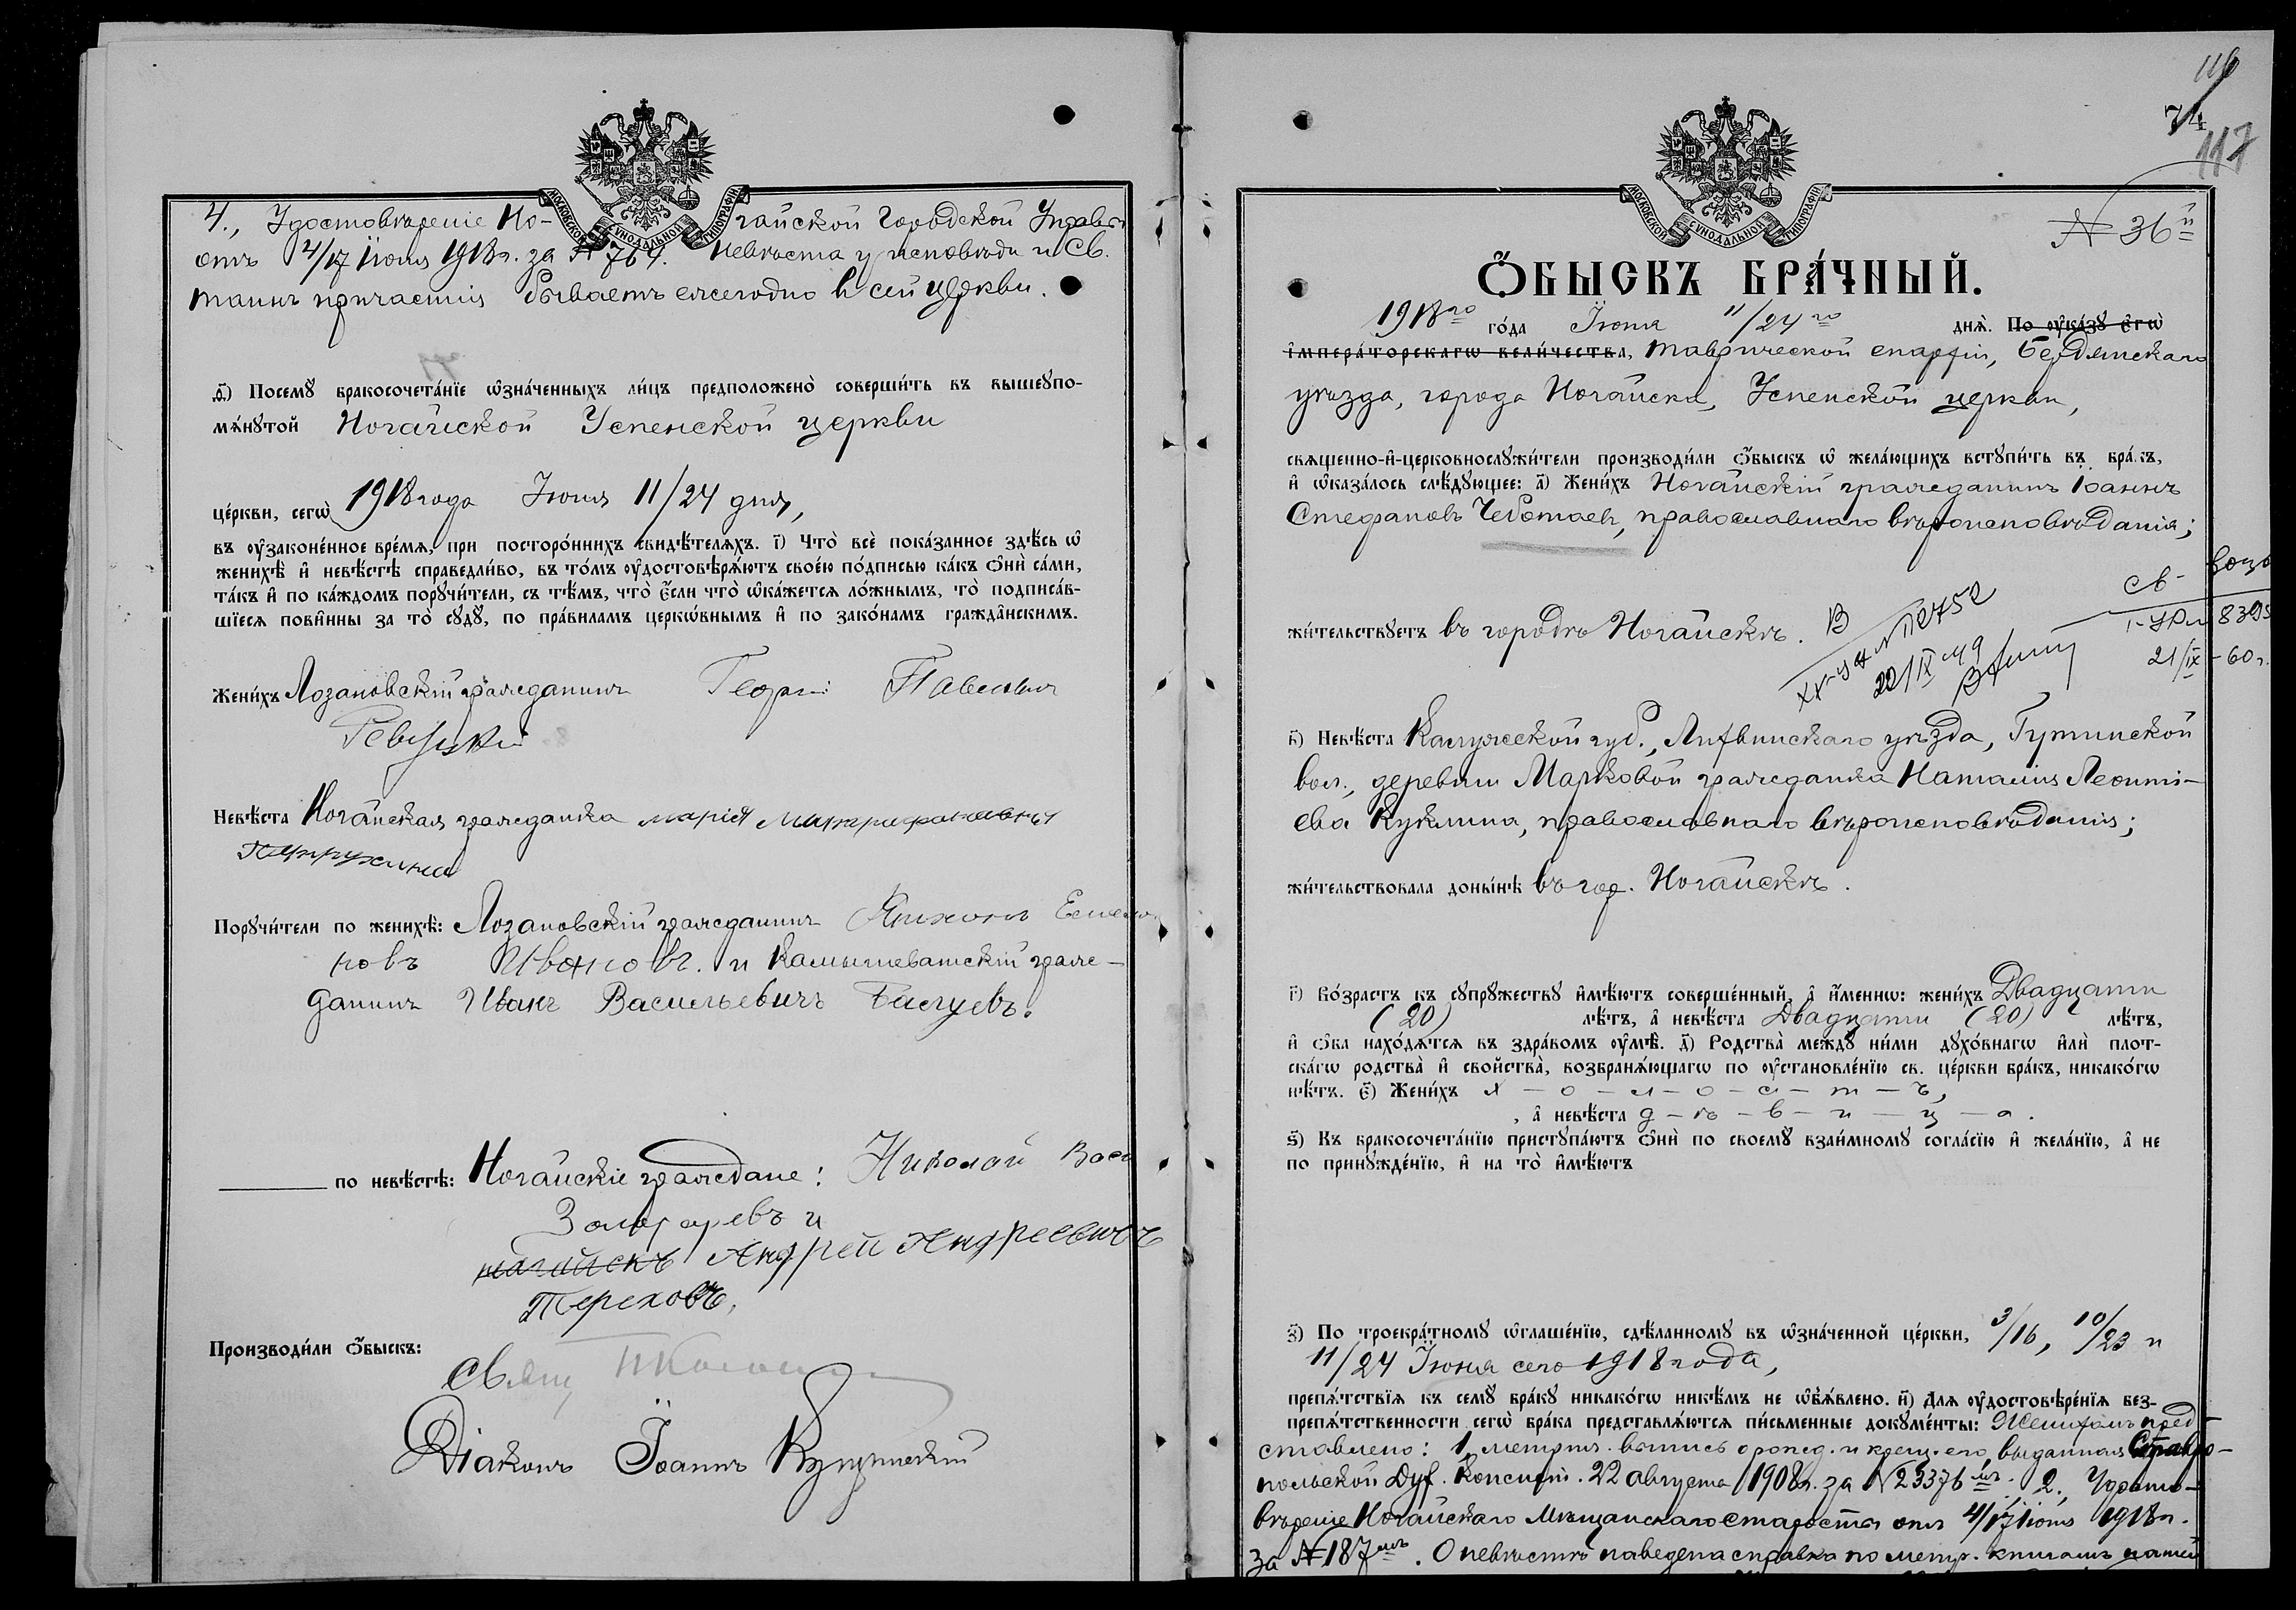 МОСКОВСКОЙ СѴНОДАЛЬНОЙ ТИПОГРАФІИ
4., Удостовѣреніе Но-гайской Городской Управы
отъ 4/17 Іюня 1918 г. за № 764. Невѣста у исповѣди и Св.
таинъ причастія бываетъ ежегодно въ сей церкви.
ѳ҃) Посемꙋ бракосочета́нїе ѡ҆зна́ченныхъ ли́цъ предположено̀ соверши́ть въ вышеꙋпо-
мѧ́нꙋтой Ногайской Успенской церкви
це́ркви, сегѡ̀ 1918 года Іюня 11/24 дня,
въ ᲂу҆законе́нное вре́мѧ, при посторо́ннихъ свидѣ́телѧхъ. і҃) Что̀ всѐ пока́занное здѣ́сь ѡ҆
женихѣ̀ и҆ невѣ́стѣ справедли́во, въ то́мъ ᲂу҆достовѣрѧ́ютъ свое́ю по́дписью ка́къ ѻ҆нѝ са́ми,
та́къ и҆ по ка́ждомъ порꙋчи́тели, съ тѣ́мъ, что̀ є҆́сли что̀ ѡ҆ка́жется ло́жнымъ, то̀ подписа́в-
шїеся пови́нны за то̀ сꙋдꙋ̀, по пра́виламъ церкѡ́внымъ и҆ по зако́намъ гражда́нскимъ.
Жени́хъ Лозановскій гражданинъ Георгій Павловичъ
Невѣ́ста Ногайская гражданка Марія Митрофановна
Порꙋчи́тели по женихѣ̀: Лозановскій гражданинъ
новъ Ивановъ. и Камышеватскій граж-
данинъ Иванъ Васильевичъ
по невѣ́стѣ: Ногайскіе граждане: Николай Вас
и
нагайскъ Андрей Андреевичъ
Тереховъ,
Производи́ли ѻ҆́быскъ:
Свящ
Діаконъ Іоаннъ
116
74
117
МОСКОВСКОЙ СѴНОДАЛЬНОЙ ТИПОГРАФІИ
№ 36й
Ѻ҆́БЫСКЪ БРА́ЧНЫЙ.
1918го го́да Іюня 11/24го днѧ̀. По ᲂу҆ка́зꙋ є҆гѡ̀
і҆мпера́торскагѡ вели́чества, Таврической епархіи, Бердянскаго
уѣзда, города Ногайска, Успенской церкви,
свѧще́нно-и҆-церковнослꙋжи́тели производи́ли ѻ҆́быскъ ѡ҆ жела́ющихъ встꙋпи́ть въ бра́къ,
и҆ ѡ҆каза́лось слѣ́дꙋющее: а҃) Жени́хъ Ногайскій гражданинъ Іоаннъ
Стефановъ Чеботаев, православнаго вѣроисповѣданія;
жи́тельствꙋетъ въ городѣ Ногайскѣ. В
№ 112752
22/IX 49
Св-
8395
21/IX-60г.
в҃) Невѣ́ста Калужской губ., Лихвинскаго уѣзда, Гутинской
вол., деревни Марковой гражданка Наталія Леонті-
ева Куклина, православнаго вѣроисповѣданія;
жи́тельствовала доны́нѣ въ гор. Ногайскѣ.
г҃) Во́зрастъ къ сꙋпрꙋ́жествꙋ и҆мѣ́ютъ соверше́нный, а҆ и҆́менно: жени́хъ Двадцати
(20) лѣ́тъ, а҆ невѣ́ста Двадцати (20) лѣ́тъ,
и҆ ѻ҆́ба нахо́дѧтсѧ въ здра́вомъ ᲂу҆мѣ̀. д҃) Родства̀ междꙋ̀ ни́ми дꙋхо́внагѡ и҆лѝ плот-
ска́гѡ родства̀ и҆ свойства̀, возбранѧ́ющагѡ по ᲂу҆становле́нїю св. це́ркви бра́къ, никако́гѡ
нѣ́тъ. є҃) Жени́хъ х-о-л-о-с-т-ъ,
, а҆ невѣ́ста д-ѣ-в-и-ц-а.
ѕ҃) Къ бракосочета́нїю пристꙋпа́ютъ ѻ҆нѝ по своемꙋ̀ взаи́мномꙋ согла́сїю и҆ жела́нїю, а҆ не
по принꙋжде́нїю, и҆ на то̀ и҆мѣ́ютъ
з҃) По троекра́тномꙋ ѡ҆глаше́нїю, сдѣ́ланномꙋ въ ѡ҆зна́ченной це́ркви, 3/16, 10/23 и
11/24 Іюня сего 1918 года,
препѧ́тствїѧ къ семꙋ̀ бра́кꙋ никако́гѡ никѣ́мъ не ѡ҆б̾ѧ́влено. и҃) Длѧ ᲂу҆достовѣре́нїѧ без-
препѧ́тственности сегѡ̀ бра́ка представлѧ́ютсѧ пи́сьменные докꙋме́нты: Женихомъ пред-
ставлено: 1, метрич. выпись о рожд. и крещ. его, выданная Ставро-
польской Дух. Консист. 22 августа 1908 г. за № 23376мъ. 2., Удосто-
вѣреніе Ногайскаго Мѣщанскаго старосты отъ 4/17 Іюня 1918 г.
за № 187мъ. О невѣстѣ наведена справка по метр. книгамъ нашей